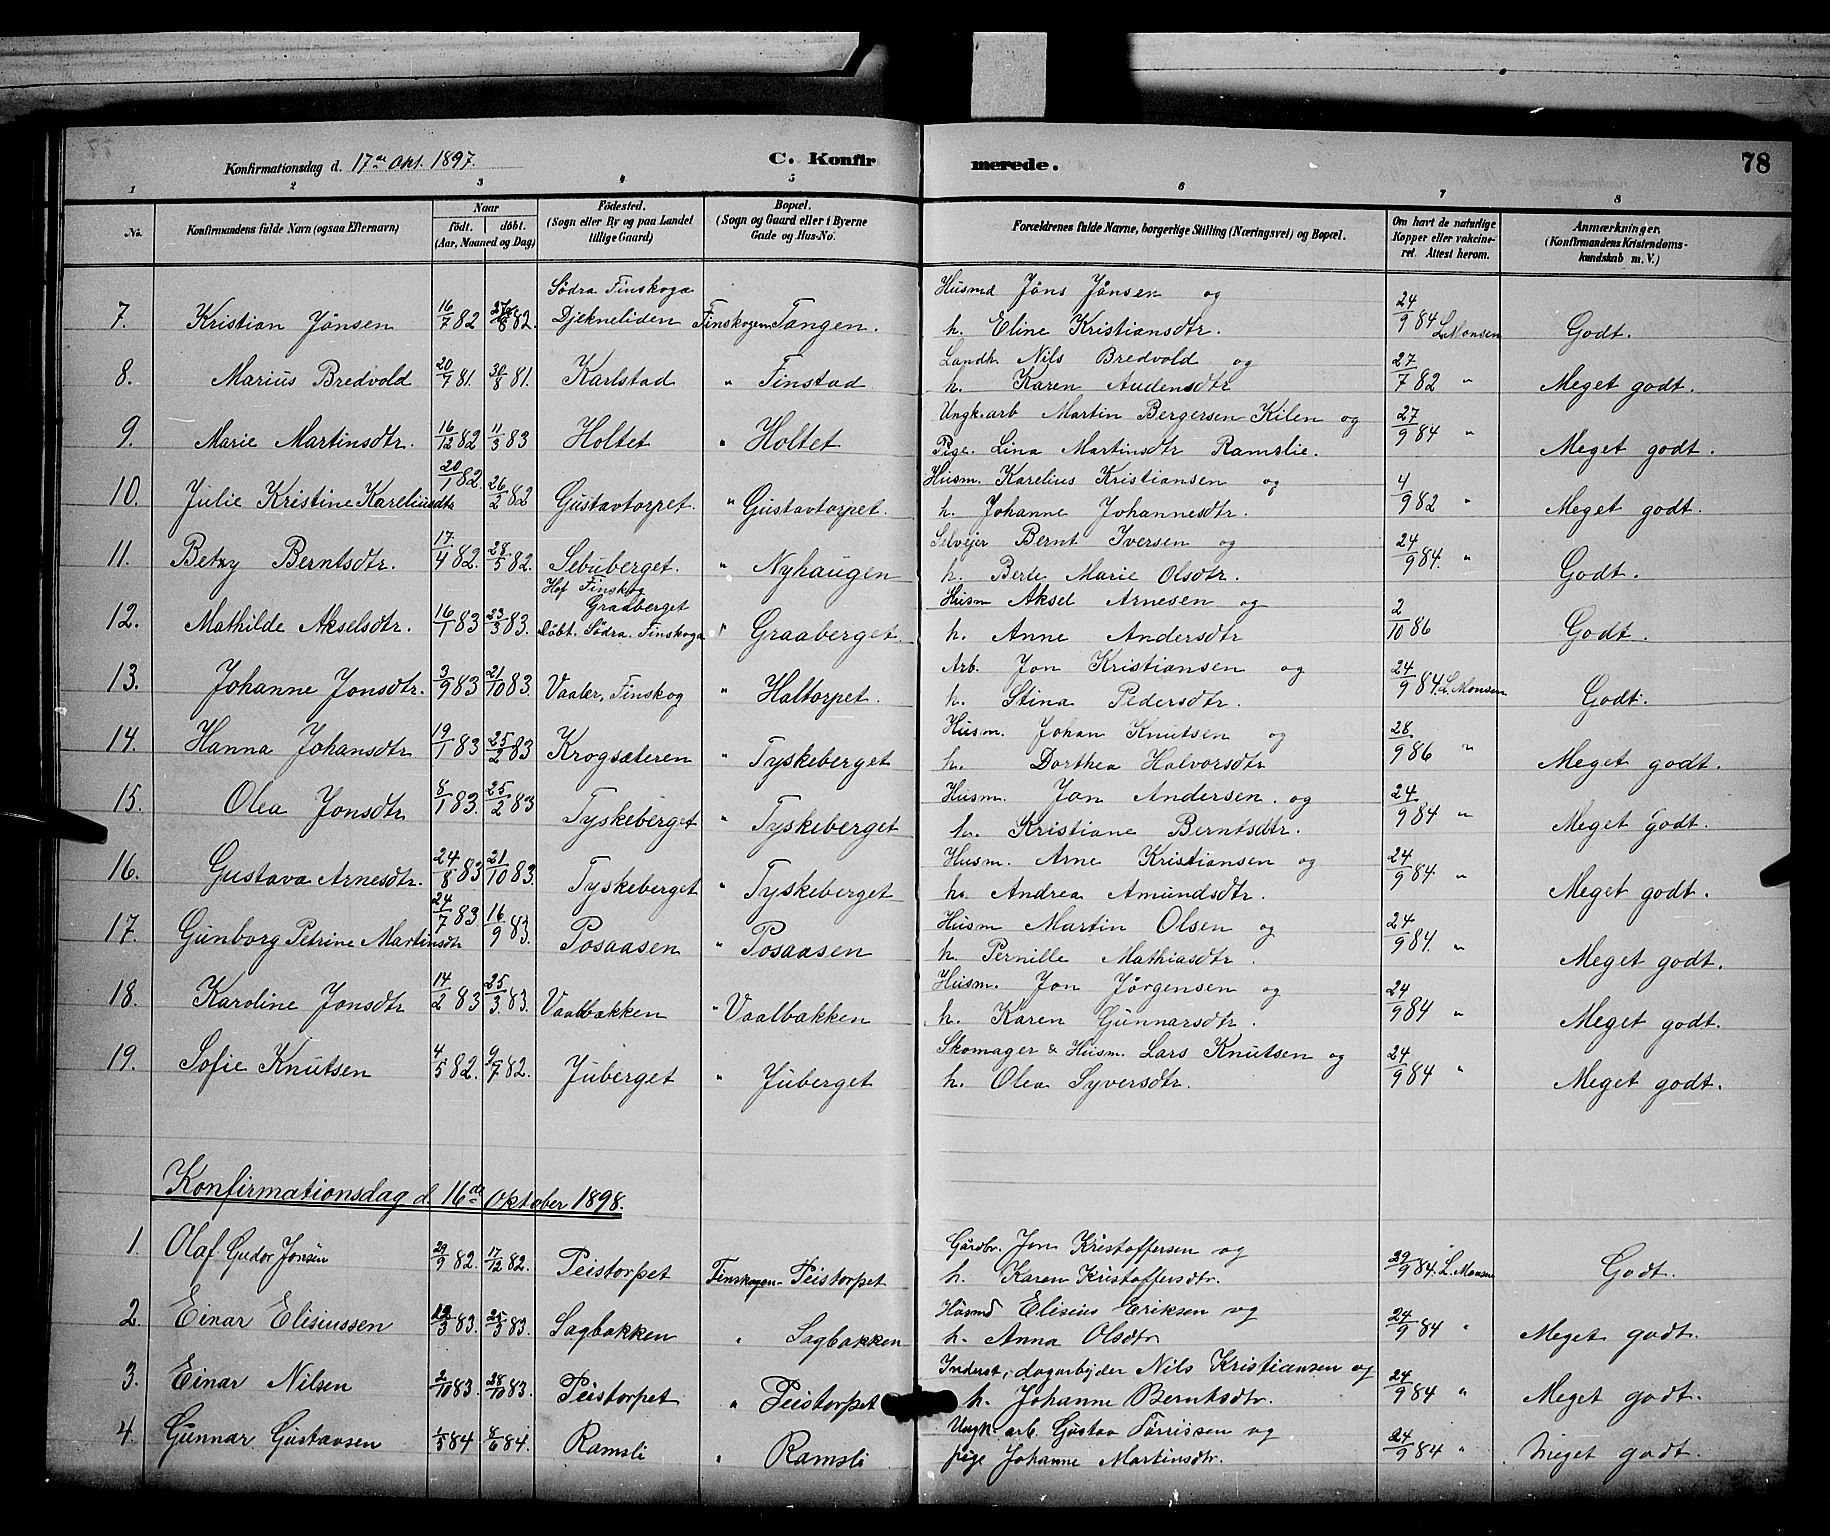 Konfirmationsdag d. 17de Okt. 1897. C. Konfirmerede. 78
1 2 3 4 5 6 7 8
No. Konfirmandens fulde Navn (ogsaa Efternavn) Naar født. døbt. (Aar, Maaned og Dag) Fødested. (Sogn eller By og paa Landet tillige Gaard) Bopæl. (Sogn og Gaard eller i Byerne Gade og Hus-No. Forældrenes fulde Navne, borgerlige Stilling (Næringsvei) og Bopæl. Om havt de naturlige Kopper eller vakcineret. Attest herom. Anmærkninger. (Konfirmandens Kristendomskundskab m. V.)
7. Kristian Jönsen 16/7 82 27/8 82. Södra Finskoga Djekneliden Finskogen Tangen. Husmd Jöns Jönsen og h. Eline Kristiansdtr. 24/9 84 L. Monsen Godt.
8. Marius Bredvold 20/7 81. 30/8 81. Karlstad " Finstad Landh. Nils Bredvold og h. Karen Audensdtr 27/7 82 " Meget godt.
9. Marie Martinsdtr. 16/12 82 11/3 83 Holtet " Holtet Ungk. arb Martin Bergersen Kilen og Pige. Lina Martinsdtr Ramslie. 27/9 84 " Meget godt.
10. Julie Kristine Kareliusdtr 20/1 82. 26/2 82 Gustavtorpet. " Gustavtorpet. Husm. Karelius Kristiansen og h. Johanne Johannesdtr. 4/9 82 " Meget godt.
11. Betzy Berntsdtr. 17/4 82. 28/5 82. Sebuberget. " Nyhaugen Selvejer Bernt Iversen og h. Berte Marie Olsdtr. 24/9 84. " Godt.
12. Mathilde Akselsdtr. 16/1 83 23/3 83. Hof Finskog Graaberget Döbt. Södra Finskoga " Graaberget Husm Aksel Arnesen og h. Anne Andersdtr 2/10 86 Godt.
13. Johanne Jonsdtr. 3/9 83 21/10 83. Vaaler, Finskog " Haltorpet. Arb. Jon Kristiansen og h. Stina Pedersdtr. 24/9 84. L. Monsen Godt.
14. Hanna Johansdtr 19/1 83 25/2 83 Krogsæteren " Tyskeberget Husm. Johan Knutsen og h. Dorthea Halvorsdtr 28/9 86 " Meget godt.
15. Olea Jonsdtr 8/1 83. 25/2 83 Tyskeberget " Tyskeberget Husm. Jon Andersen. og h. Kristiane Berntsdtr. 24/9 84 " Meget godt.
16. Gustava Arnesdtr. 24/8 83 21/10 83. Tyskeberget " Tyskeberget Husm. Arne Kristiansen og h. Andrea Amundsdtr. 24/9 84 " Meget godt.
17. Gunborg Petrine Martinsdtr 24/7 83. 16/9 83. Posaasen " Posaasen Husm Martin Olsen og h. Pernille Mathiasdtr. 24/9 84. " Meget godt.
18. Karoline Jonsdtr 14/2 83 25/3 83. Vaalbakken " Vaalbakken Husm. Jon Jörgensen og h. Karen Gunnarsdtr. 24/9 84 " Meget godt.
19. Sofie Knutsen 4/5 82. 9/7 82. Juberget " Juberget Skomager & Husm. Lars Knutsen og h. Olea Syversdtr. 24/9 84 " Meget godt.
Konfirmationsdag d. 16de Oktober 1898.
1. Olaf Gudor Jonsen 29/9 82. 17/12 82. Peistorpet Finskogen Peistorpet Gårdbr. Jon Kristoffersen og h. Karen Kristoffersdtr. 29/9 84. L. Monsen Godt.
2. Einar Elisiussen 12/3 83. 25/3 83. Sagbakken " Sagbakken Husmd Elisius Eriksen og h. Anna Olsdtr 24/9 84 " Meget godt.
3. Einar Nilsen 2/10 83. 28/10 83. Peistorpet " Peistorpet Inderst, dagarbejder Nils Kristiansen og h. Johanne Berntsdtr. 24/9 84 " Meget godt.
4. Gunnar Gustavsen 1/5 84 8/6 84. Ramsli " Ramsli Ungk. arb. Gustav Törrissen og pige Johanne Martinsdtr. 24/9 84 " Meget godt.